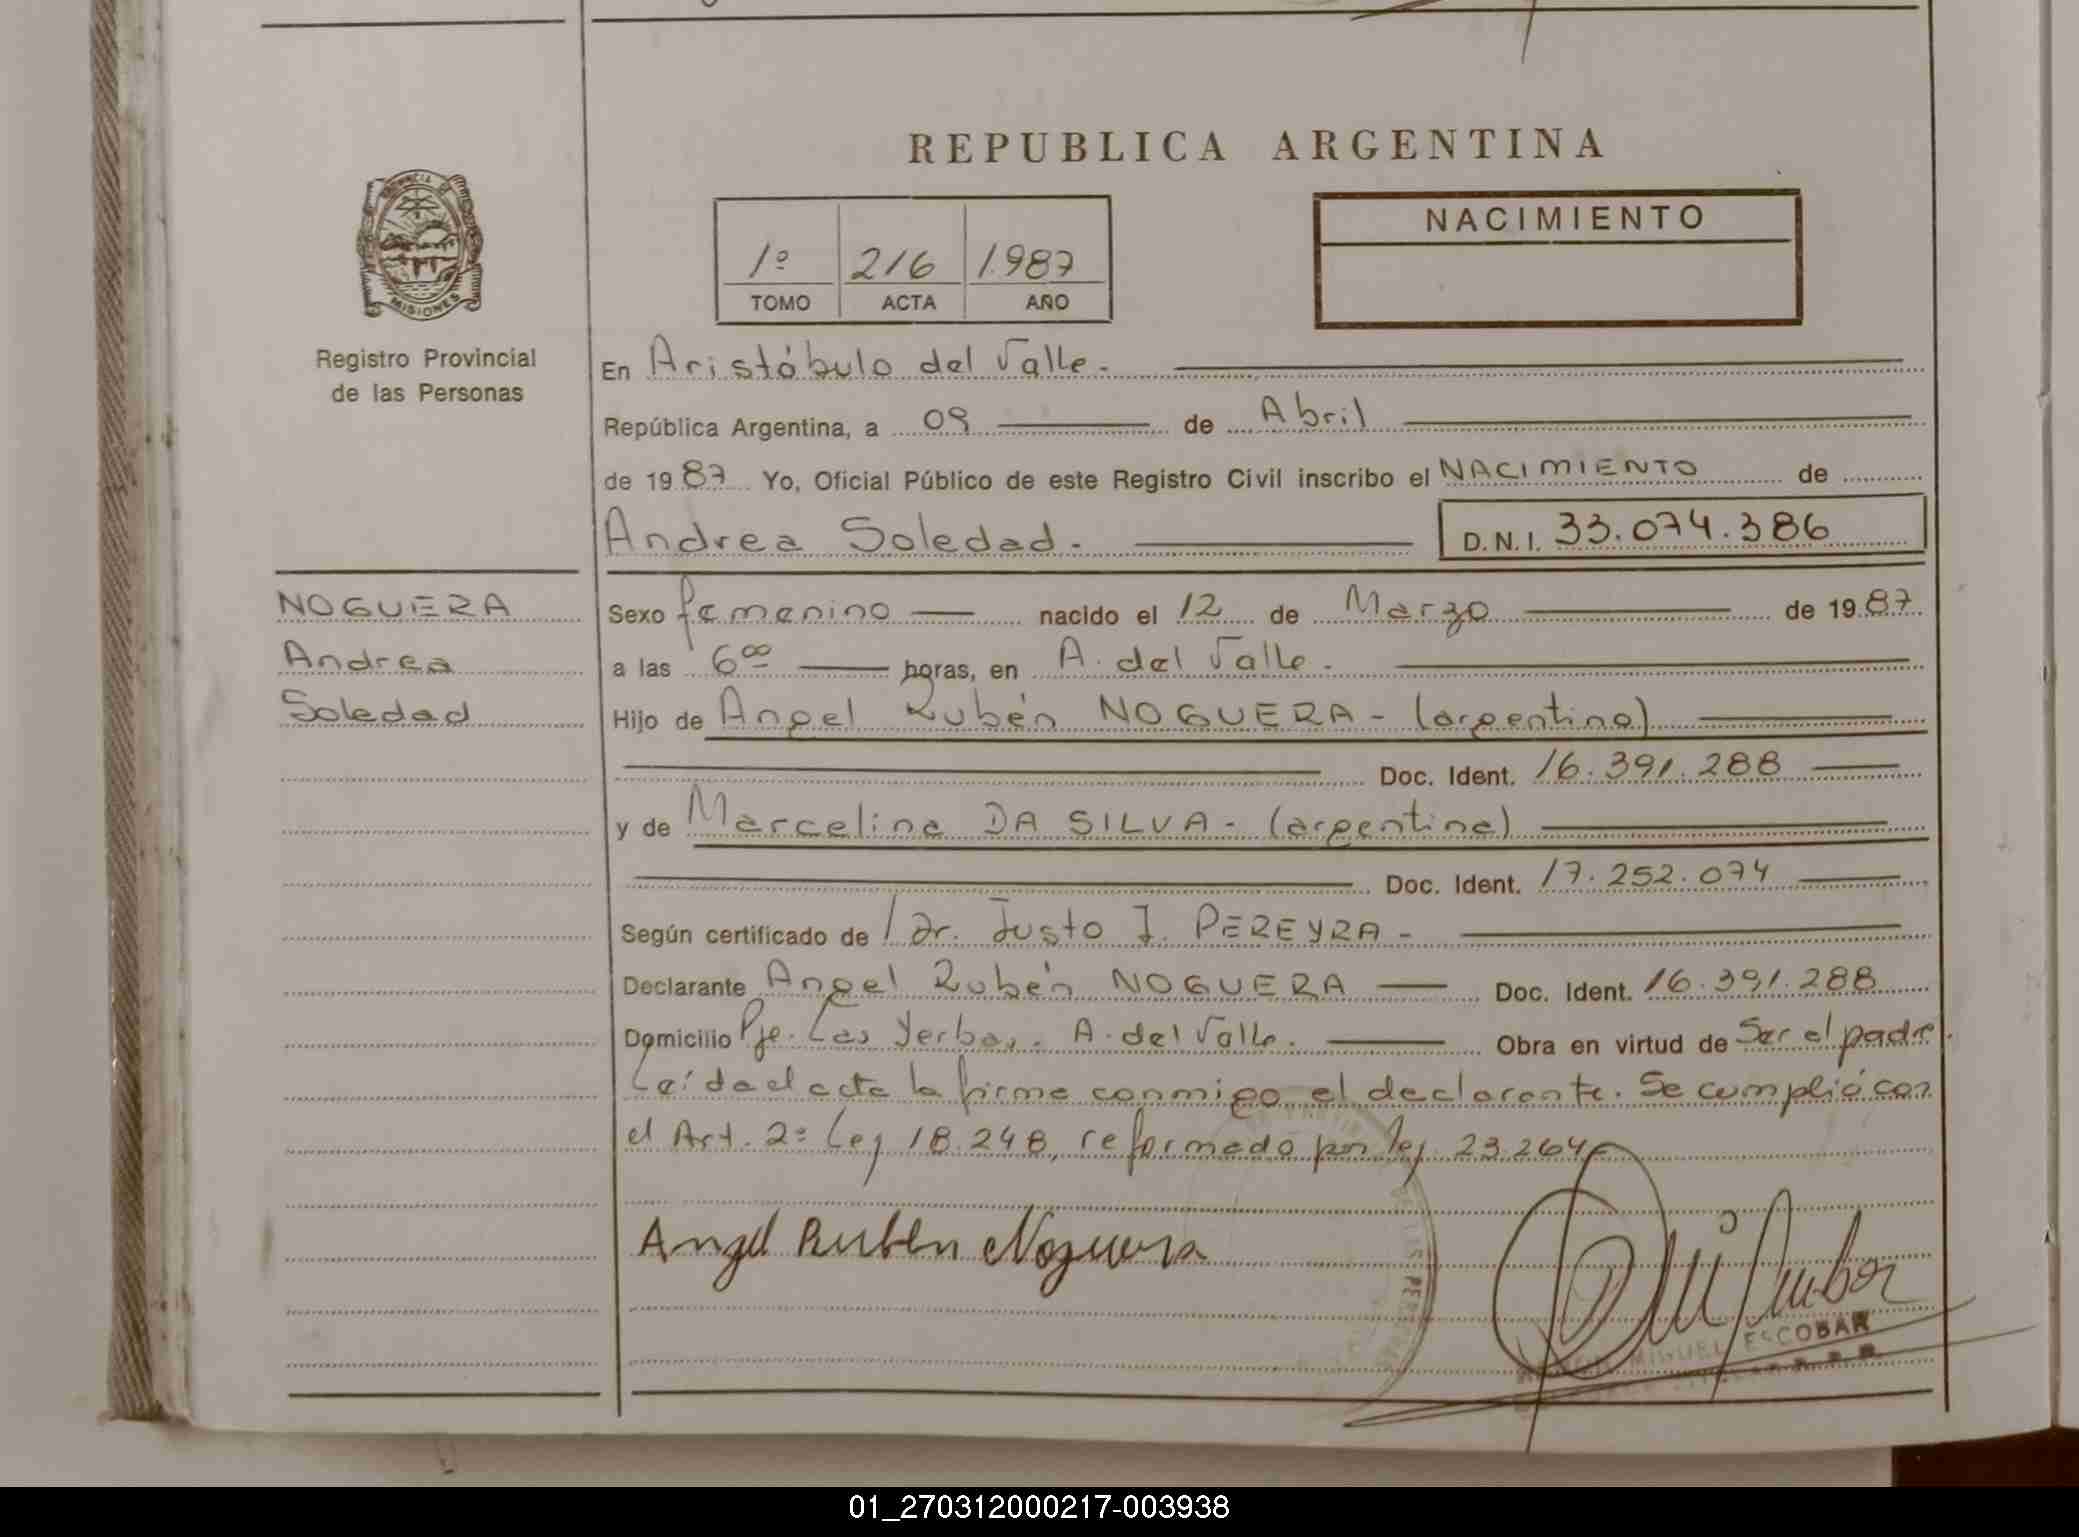 REPUBLICA ARGENTINA
PROVINCIA DE
MISIONES
Registro Provincial
de las Personas
1º 216 1.987
TOMO ACTA AÑO
NACIMIENTO
En Aristóbulo del Valle.-
República Argentina, a 09 de Abril
de 1987 Yo, Oficial Público de este Registro Civil inscribo el NACIMIENTO de
Andrea Soledad.-
D.N.I. 33.074.386
NOGUERA
Andrea
Soledad
Sexo femenino nacido el 12 de Marzo de 1987
a las 6 00 horas, en A. del Valle.-
Hijo de Angel Rubén NOGUERA - (argentino)
Doc. Ident. 16.391.288
y de Marcelina DA SILVA - (argentina)
Doc. Ident. 17.252.074
Según certificado de Dr. Justo J. PEREYRA -
Declarante Angel Rubén NOGUERA Doc. Ident. 16.391.288
Domicilio Pje. Las Yerbas. A. del Valle. Obra en virtud de Ser el padre.
Leída el acta la firma conmigo el declarante. Se cumplió con
el Art. 2º Ley 18.248, reformado por ley 23.264
Angel Ruben Noguera
MIGUEL ESCOBAR
01_270312000217-003938